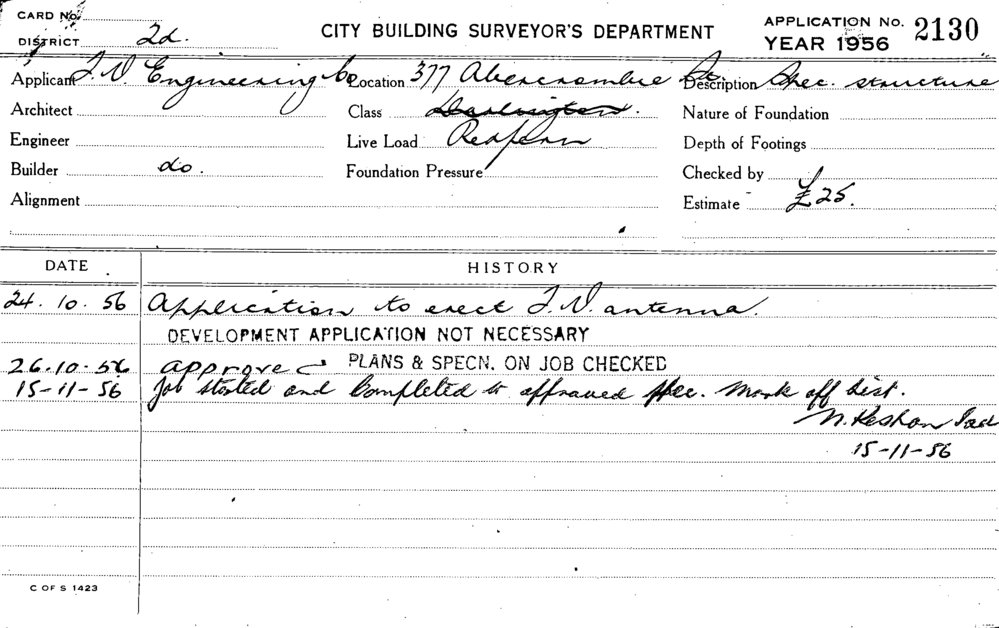 CARD No.
DISTRICT 2d.
CITY BUILDING SURVEYOR'S DEPARTMENT
APPLICATION No. 2130
YEAR 1956
Applicant T.V. Engineering Co Location 377 Abercrombie St. Description Spec. structure
Architect Class Darlington. Nature of Foundation
Engineer Live Load Redfern Depth of Footings
Builder do. Foundation Pressure Checked by
Alignment Estimate £25.
DATE HISTORY
24.10.56 Application to erect T.V. antenna.
DEVELOPMENT APPLICATION NOT NECESSARY
26.10.56 approved PLANS & SPECN. ON JOB CHECKED
15-11-56 Job started and Completed to approved spec. Mark off list.
15-11-56
C OF S 1423